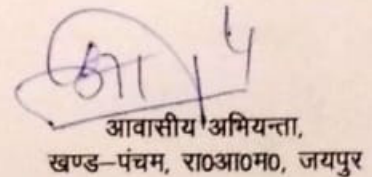 आवासीय अभियन्ता,
खण्ड-पंचम, रा0आ0म0, जयपुर